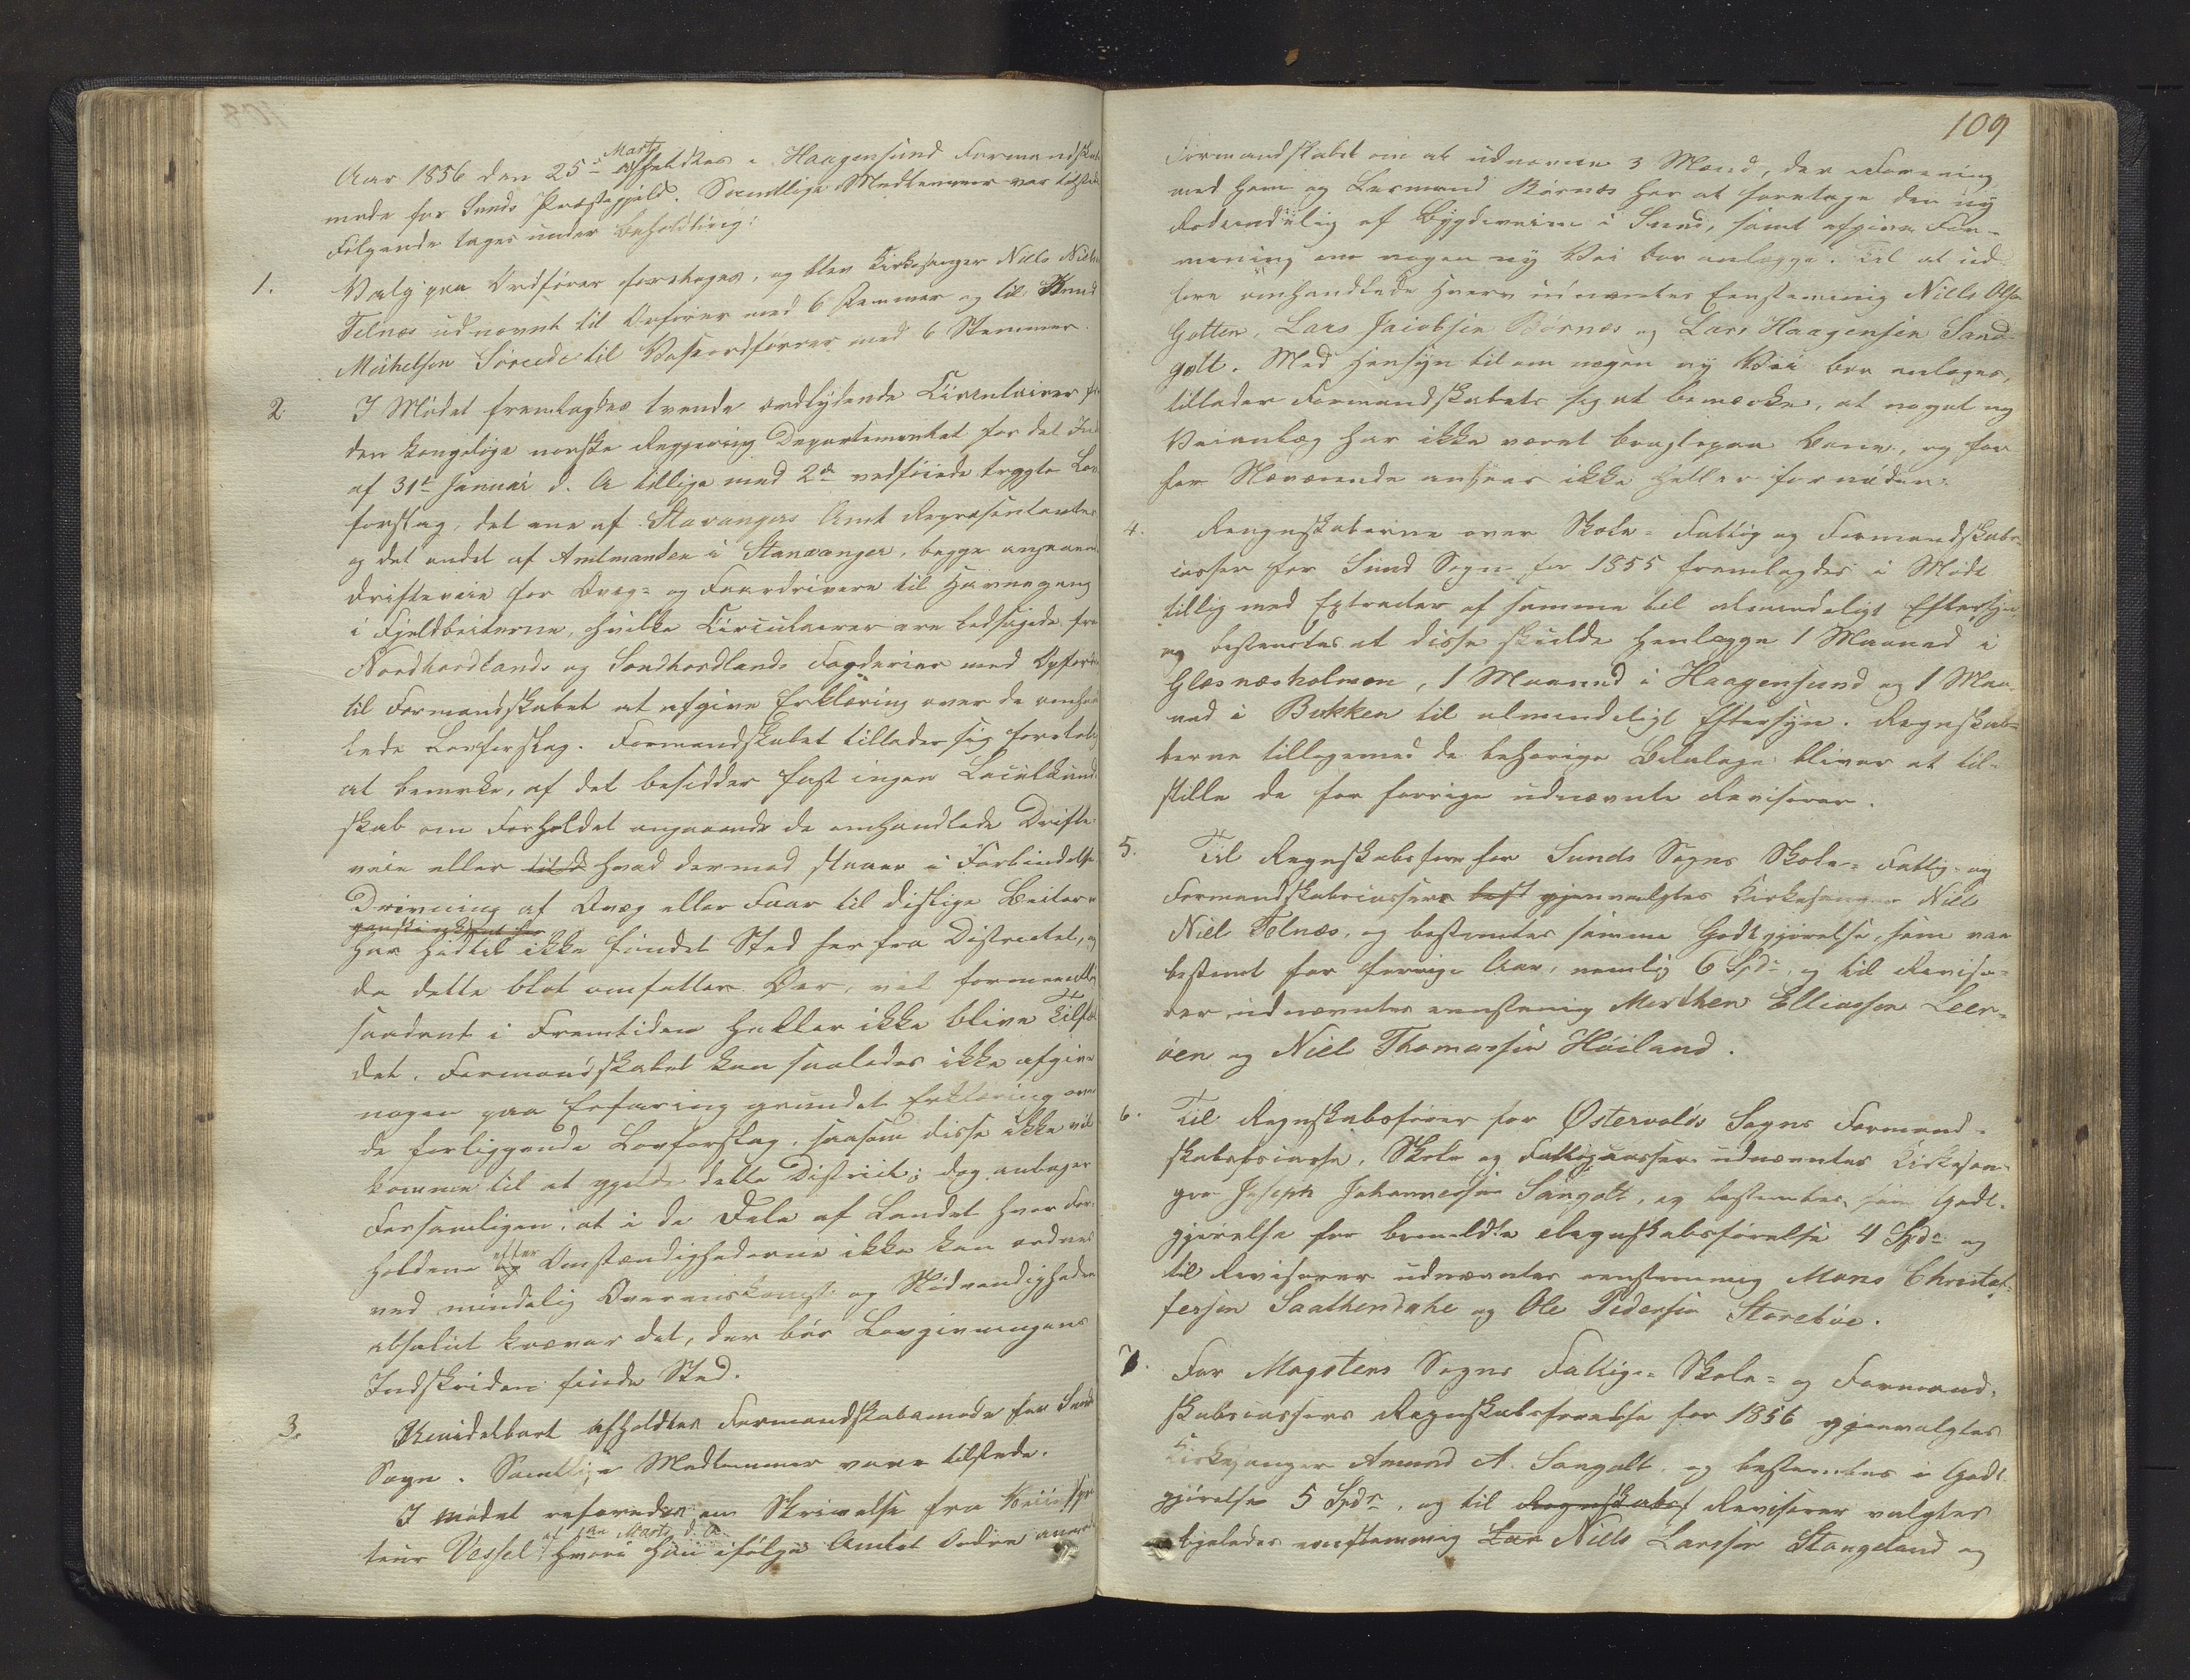 Aar 1856 den 25de Marts afholdtes i Haagensund Formandskabs
møde for Sunds Præstegjeld. Samtlige Medlemmer var tilstede
Følgende toges under Beholdning:
1. Valg paa Ordfører foretoges, og blev Kirkesanger Niels Niels
Telnæs udnævnt til Orfører med 6 Stemmer og til Knud
Mikkelsen Søreide til Viseordfører med 6 Stemmer.
2. I Mødet fremlagdes tvende ordlydende Circulairer fra
den kongelige norske Regjerings Departementet for det Ind
af 31te Januar d. A tillige med 2de vedføiede trygte Lov
forslag, det ene af Stavangers Amt Repræsentanter
og det andet af Amtmanden i Stanvanger, begge angaaend
Drifteveie for Qvæg- og Faardrivere til Havnegang
i Fjeldbeiterne, hvilke Circulairer ere ledsagede fra
Nordhordlands og Søndhordlands Fogderier med Opfordr
til Formandskabet at afgive Erklæring over de omhan
lede Lovforslag. Formandskabet tillader sig foreløbig
at bemærke, af det besidder fast ingen Localkund
skab om Forholdet angaaende de omhandlede Drifte
veie eller hvad dermed staaer i Forbindelse.
Drivning af Qvæg eller Faar til distige Beiter
har hidtil ikke fundet Sted her fra Districtet, og
da dette blot omfatter Øer, vil formeentlig
saadant i Fremtiden heller ikke blive Tilfæl
det. Formandskabet kan saaledes ikke afgive
nogen paa Erfaring grundet Erklæring over
de forliggende Lovforslag, saasom disse ikke vil
komme til at gjelde dette District; dog antager
Forsamligen, at i de Dele af Landet hvor For
holdene efter Omstændighederne ikke kan ordnes
ved mindelig Overenskomst og Nødvendigheden
absolut kræver det, der bør Lovgivningens
Indskriden finde Sted.
3. Umidelbart afholdtes Formandskabsmøde for Sunds
Sogn. Samtlige Medlemmer vare tilstede.
I mødet refereredes en Skrivelse fra Veiinspec
teur Vessel af 1ste Marts d. A. hvori han ifølge Amtets Ordre anmod
109
Formandskabet om at udnævne 3 Mænd, der i Forening
med ham og Lensmand Børnæs har at foretage den ny
Rodeinddelig af Bygdeveiene i Sund, samt afgive For-
mening om nogen ny Vei bør anlægge. Til at ud
føre omhandlede Hverv udnævntes Eenstemmig Niels Olsen
Golten, Lars Jacobsen Børnæs og Lars Haagensen Sand-
golt. Med Hensyn til om nogen ny Vei bør anlæges,
tillader Formandskabets sig at bemærke, at noget ny
Veianlæg har ikke været bragt paa Bane, og for
for Nærværende ansees ikke heller fornøden.
4. Rengnskaberne over Skole- Fattig og Formandskabs-
casser for Sund Sogn for 1855 fremlagdes i Møde
tillig med Extracter af samme til almindeligt Eftersyn
og bestemtes at disse skulde henlægge 1 Maaned i
Glæsnæsholmen, 1 Maaned i Haagensund og 1 Maa-
ned i Bukken til almindeligt Eftersyn. Regnskab-
berne tilligemed de behørige Bilalage bliver at til-
stille de for forrige udnævnte Revisorer.
5. Til Regnskabsfører for Sunds Sogns Skole- Fattig- og
Formandskabscasser gjenvalgtes Kirkesanger Niels
Niel Telnæs, og bestemtes samme Godtgjørelse, som var
bestemt for forrige Aar, nemlig 6 Spd, og til Reviso-
rer udnævntes eenstemig Morthen Elliassen Leer-
øen og Niel Thomassen Høiland.
6. Til Regnskabsfører for Østervolds Sogns Formand-
skabscasse, Skole og Fattigcasser udnævntes Kirkesan-
ger Joseph Johannessen Sangolt, og bestemtes som Godt-
gjørelse for bemeldte Regnskabsførelse 4 Spd og
til Revisorer udnævntes eenstemmig Mons Christof-
fersen Saathendahe og Ole Pedersen Storebøe.
7. For Møgstens Sogns Fattig- Skole- og Formand-
skabscassers Regnskabsførelse for 1856 gjenvalgtes
Kirkesanger Amund A. Sangolt, og bestemtes i Godt
gjørelse 5 Spdr, og til Regnskabsf Revisorer valgtes
ligeledes eenstemmig Lar Niels Larssen Stangeland og